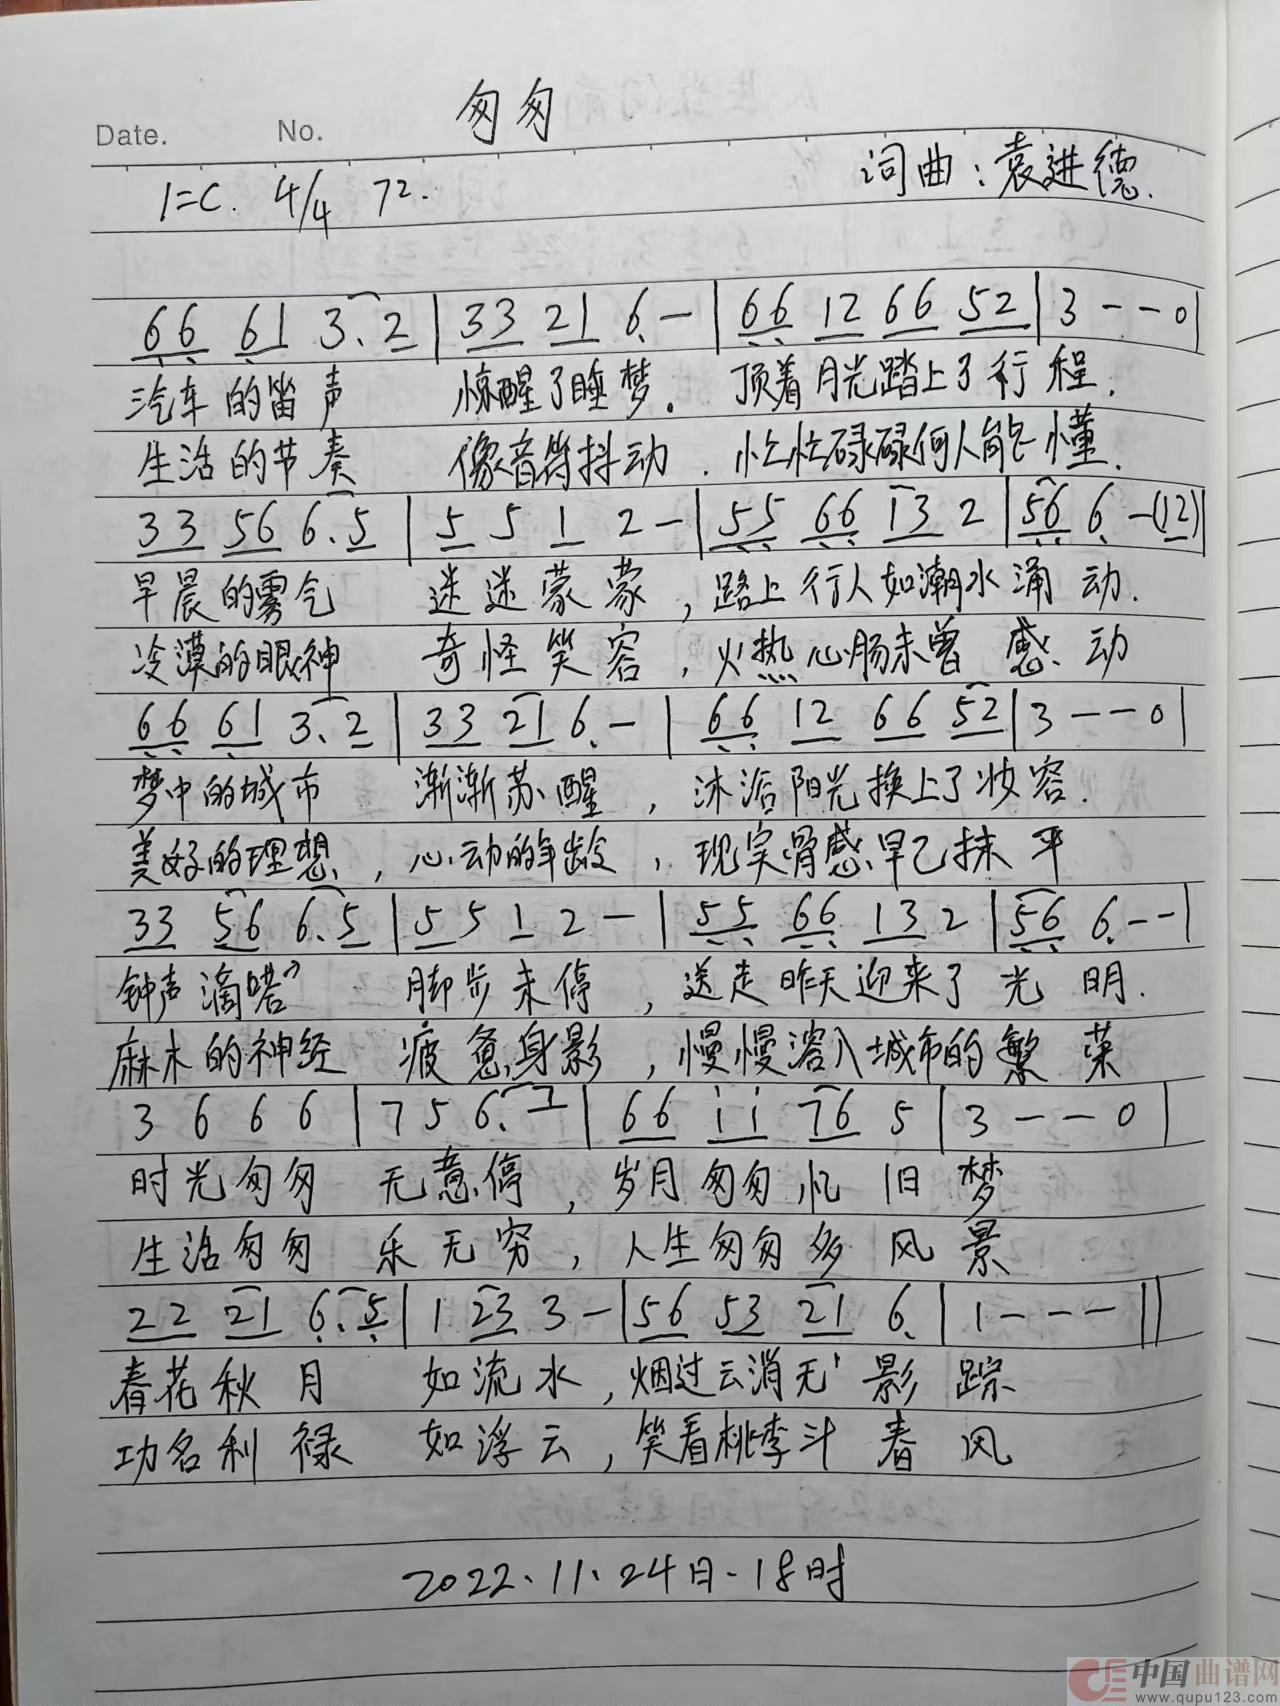 匆匆
Date. No.
1=C. 4/4 72.
词曲:袁进德.
66 61 3.2|33 21 6-|66 12 66 52|3--0|
汽车的笛声 惊醒了睡梦. 顶着月光踏上了行程.
生活的节奏 像音符抖动. 忙忙碌碌何人能懂.
33 56 6.5|5 5 1 2-|55 66 13 2|56 6-(12)|
早晨的雾气 迷迷蒙蒙,路上行人如潮水涌动.
冷漠的眼神 奇怪笑容,火热心肠未曾感动
66 61 3.2|33 21 6.-|66 12 66 52|3--0|
梦中的城市 渐渐苏醒,沐浴阳光换上了妆容.
美好的理想,心动的年龄,现实骨感早已抹平
33 56 6.5|5 5 1 2-|55 66 13 2|56 6.--|
钟声滴嗒 脚步未停,送走昨天迎来了光明.
麻木的神经 疲惫身影,慢慢溶入城市的繁荣
3 6 6 6|7 5 6.7|66 ii 76 5|3---0|
时光匆匆 无意停,岁月匆匆忆旧梦
生活匆匆 乐无穷,人生匆匆多风景
22 21 6.5|1 23 3-|56 53 21 6.|1---||
春花秋月 如流水,烟过云消无影踪
功名利禄 如浮云,笑看桃李斗春风
2022.11.24日.18时
中国曲谱网
www.qupu123.com